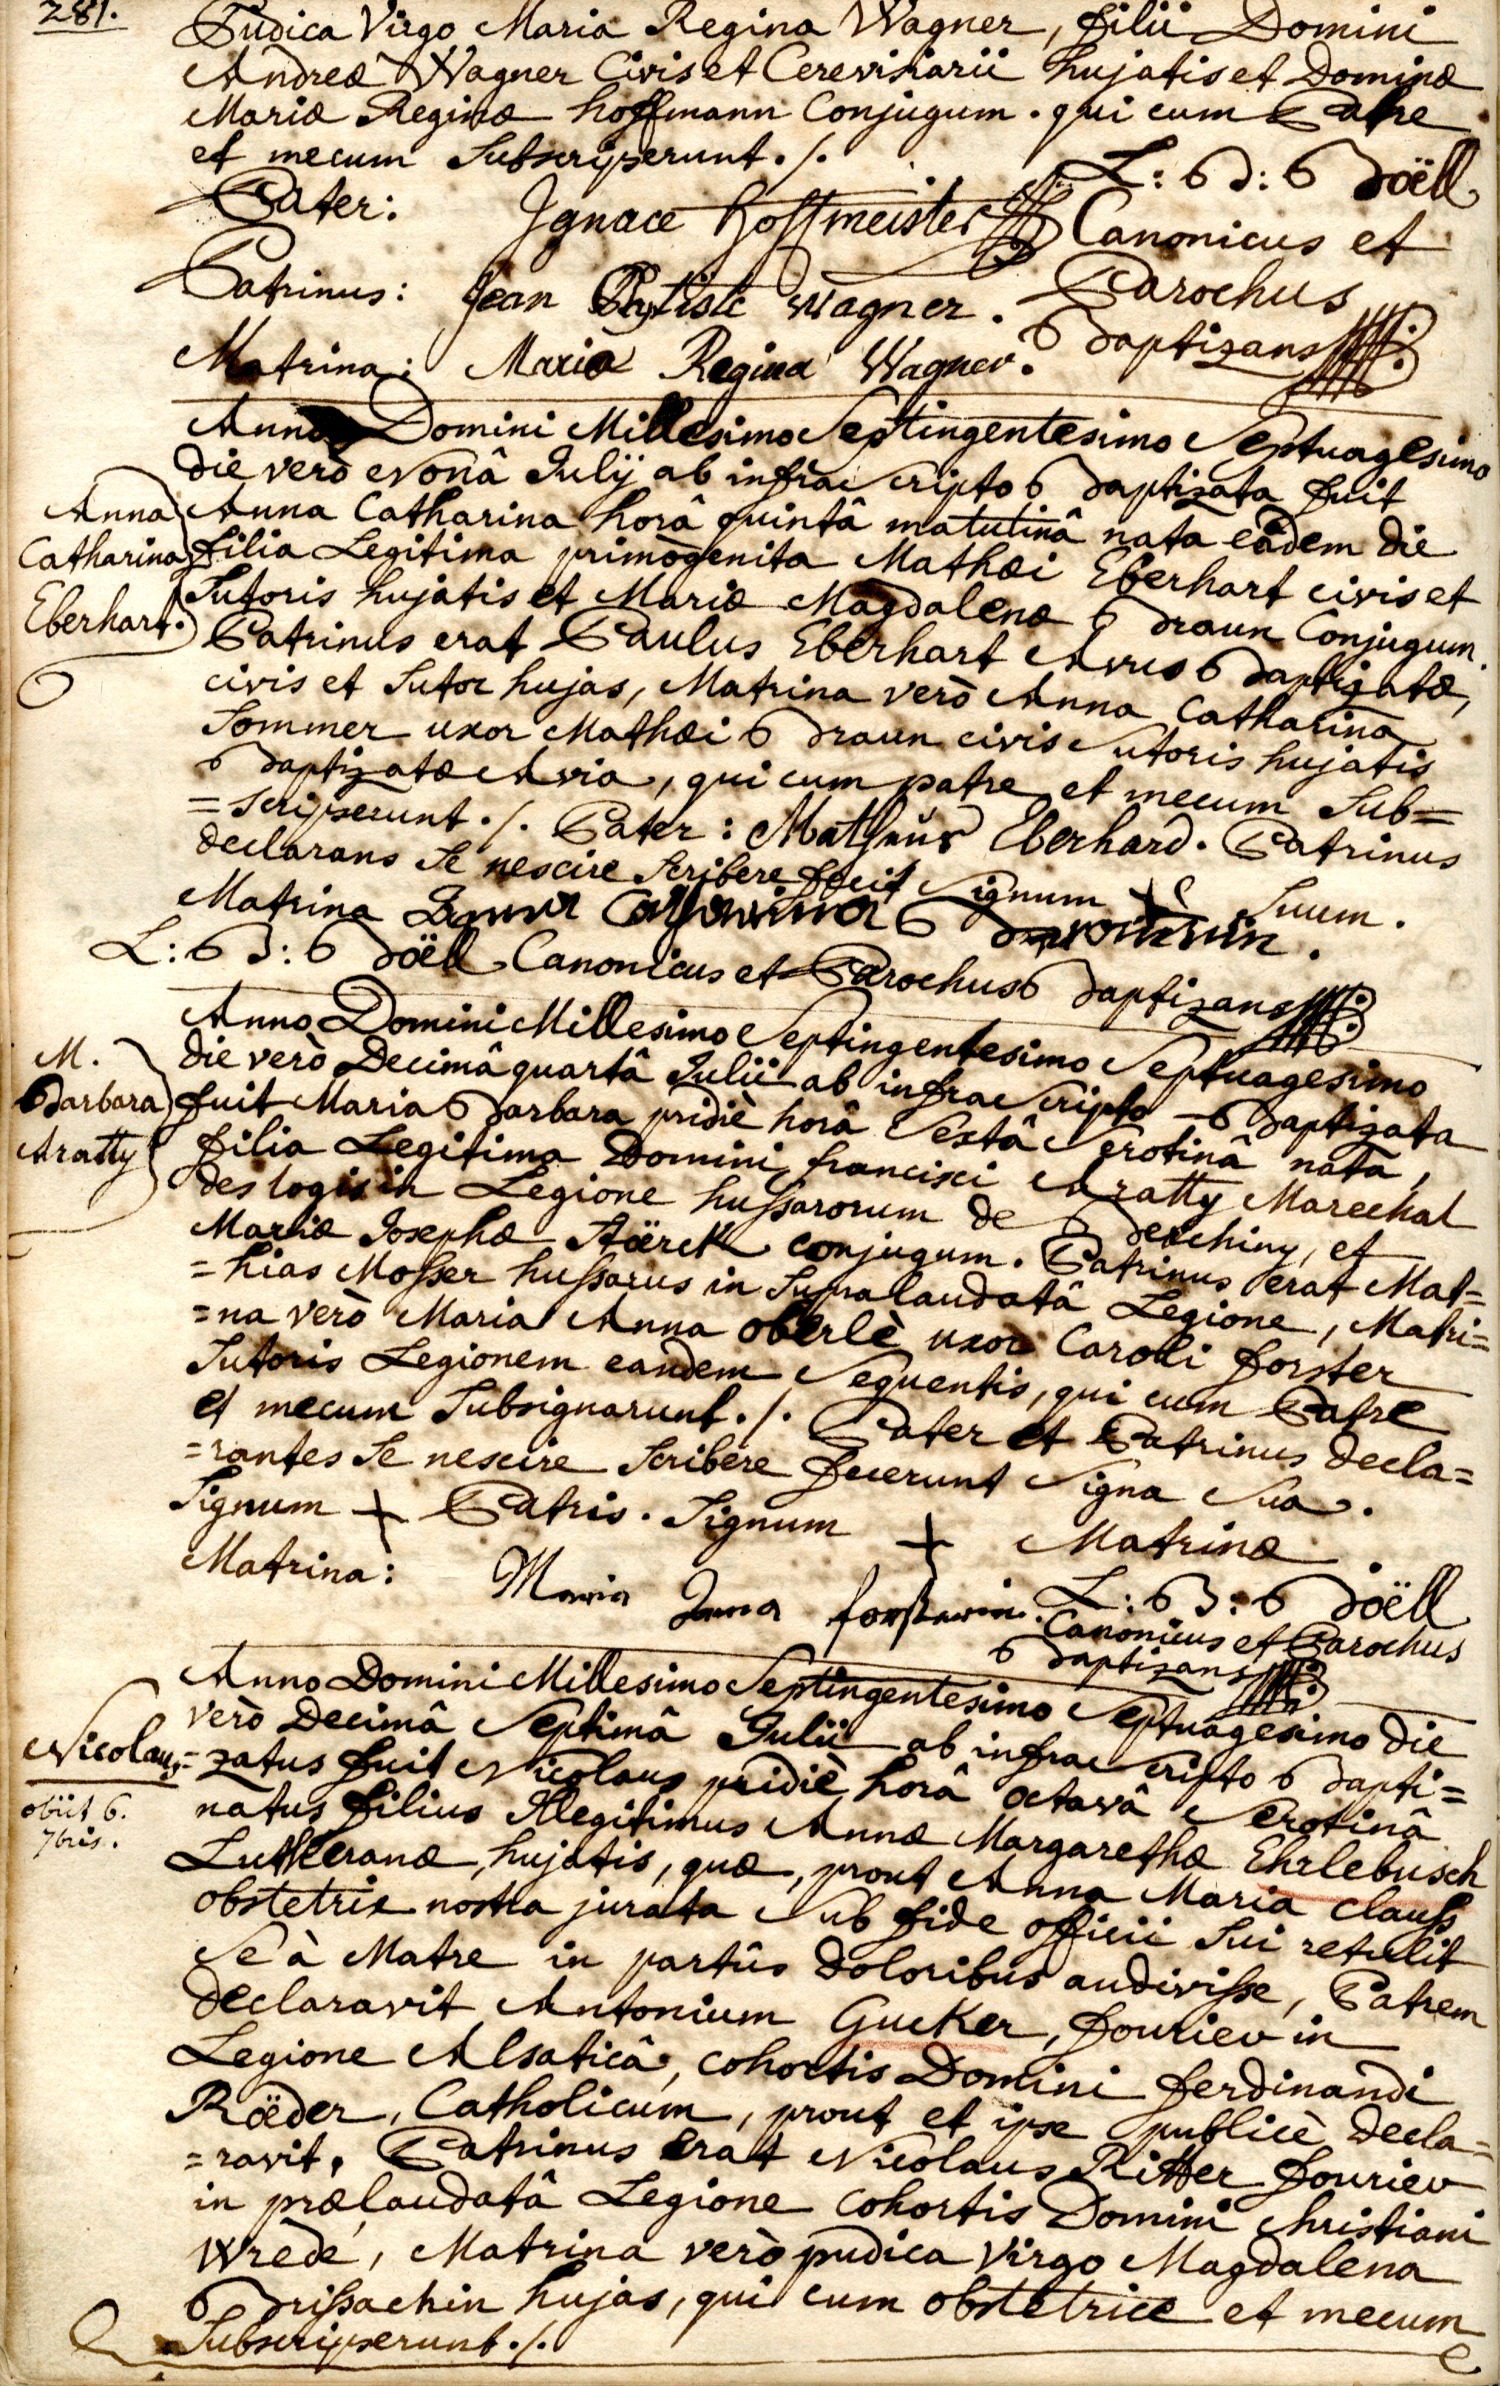 281.
Pudica Virgo Maria Regina Wagner, filii Domini
Andreæ Wagner Civis et Cerevisiarii hujatis et Dominæ
Mariæ Reginæ hoffmann Conjugum. qui cum Patre
et mecum Subscripserunt ./.
L: B: Boëll
Pater: Ignace hoffmeister
Canonicus et
Parochus
Patrinus: Jean Baptiste Wagner.
Baptizans
Matrina: Maria Regina Wagner.
Anno Domini Millesimo Septingentesimo Septuagesimo
die verò Nonâ Julij ab infra Scripto Baptizata fuit
Anna Catharina Eberhart.
Anna Catharina horâ quintâ matutinâ nata eâdem die
filia Legitima primògenita Mathæi Eberhart civis et
Sutoris hujatis et Mariæ Magdalenæ Braun Conjugum.
Patrinus erat Paulus Eberhart Avus Baptizatæ,
civis et Sutor hujas, Matrina verò Anna Catharina
Sommer uxor Mathæi Braun civis Sutoris hujatis
Baptizatæ Avia, qui cum patre et mecum Sub=
=scripserunt ./. Pater: Mathæus Eberhard. Patrinus
declarans Se nescire Scribere fecit Signum + Suum.
Matrina Anna Catharina Braunin.
L: B: Boëll Canonicus et Parochus Baptizans
Anno Domini Millesimo Septingentesimo Septuagesimo
die verò Decimâ quartâ Julii ab infra Scripto Baptizata
M. Barbara Aratty
fuit Maria Barbara pridiè horâ Sextâ Serotinâ nata,
filia Legitima Domini francisci Aratty Marechal
des logis in Legione hussarorum de Berchiny, et
Mariæ Josephæ Stärck conjugum. Patrinus erat Mat=
=hias Mosser hussarus in Supralaudatâ Legione, Matri=
=na verò Maria Anna oberlè uxor Caroli forster
Sutoris Legionem eandem Sequentis, qui cum Patre
et mecum Subsignarunt ./. Pater et Patrinus decla=
=rantes Se nescire Scribere fecerunt Signa Sua.
Signum + Patris. Signum + Matrinæ
Matrina: Maria Anna forsterin.
L: B: Boëll
Canonicus et Parochus
Baptizans
Anno Domini Millesimo Septingentesimo Septuagesimo die
verò Decimâ Septimâ Julii ab infra Scripto Bapti=
Nicolaus
obiit 6.
7bris.
=zatus fuit Nicolaus pridiè horâ octavâ Serotinâ
natus filius Illegitimus Annæ Margarethæ Ehrlebusch
Lutheranæ, hujatis, quæ, prout Anna Maria Clauss
obstetrix nostra jurata Sub fide officii Sui retulit
Se à Matre in partûs doloribus audivisse, Patrem
declaravit Antonium Gucker, fourier in
Legione Alsaticâ, cohortis Domini ferdinandi
Röeder, Catholicum, prout et ipse publicè decla=
=ravit. Patrinus erat Nicolaus Ritter fourier
in prælaudatâ Legione cohortis Domini Christiani
Wredé, Matrina verò pudica Virgo Magdalena
Brissachin hujas, qui cum obstetrice et mecum
Subscripserunt ./.